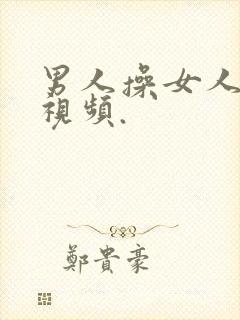 男人操女人
視頻.
鄭貴豪